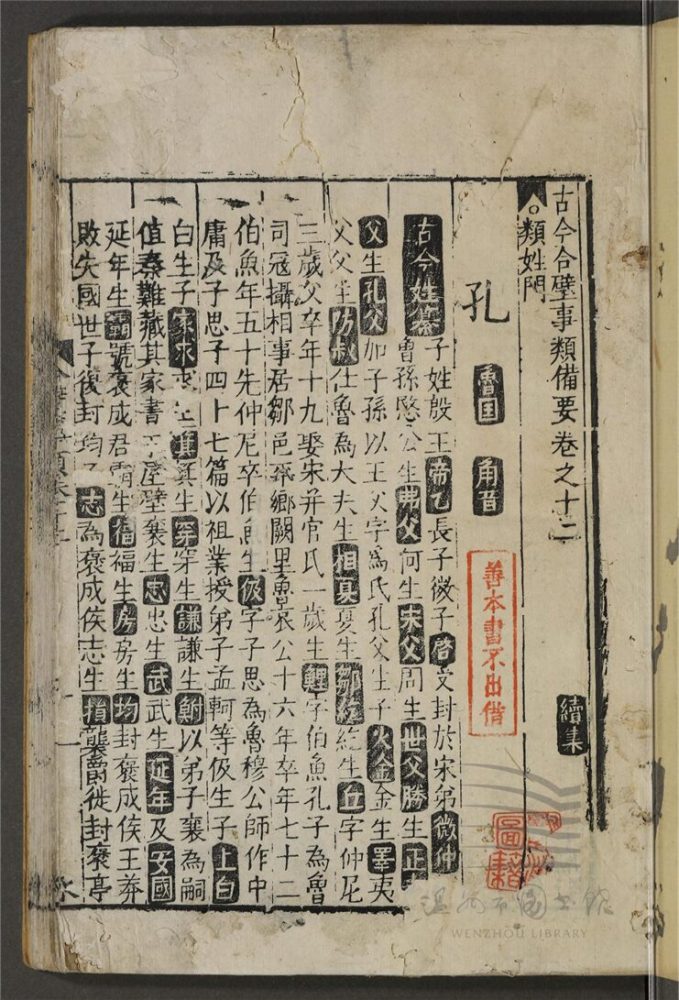 古今合璧事類備要卷之十二
續集
類姓門
孔 魯国 角音
善本書不出借
圖
古今姓纂子姓殷王帝乙長子微子啓受封於宋弟微仲
曾孫愍公生弗父何生宋父周生世父勝生正
父生孔父加子孫以王父字爲氏孔父生子火金金生睪夷
父父生防叔仕魯為大夫生相夏夏生鄒紇紇生丘字仲尼
三歲父卒年十九娶宋并官氏一歲生鯉字伯魚孔子為魯
司冠攝相事居鄒邑平鄉闕里魯哀公十六年卒年七十二
伯魚年五十先仲尼卒伯魚生伋字子思為魯穆公師作中
庸及子思子四十七篇以祖業授弟子孟軻等伋生子上白
白生子家求求生箕箕生穿穿生謙謙生鮒以弟子襄為嗣
值秦難藏其家書于屋壁襄生忠忠生武武生延年及安國
延年生霸號褒成君霸生福福生房房生均封褒成侯王莽
敗失國世子復封均子志為褒成侯志生損襲爵徙封褒亭
温州市圖書館
WENZHOU LIBRARY